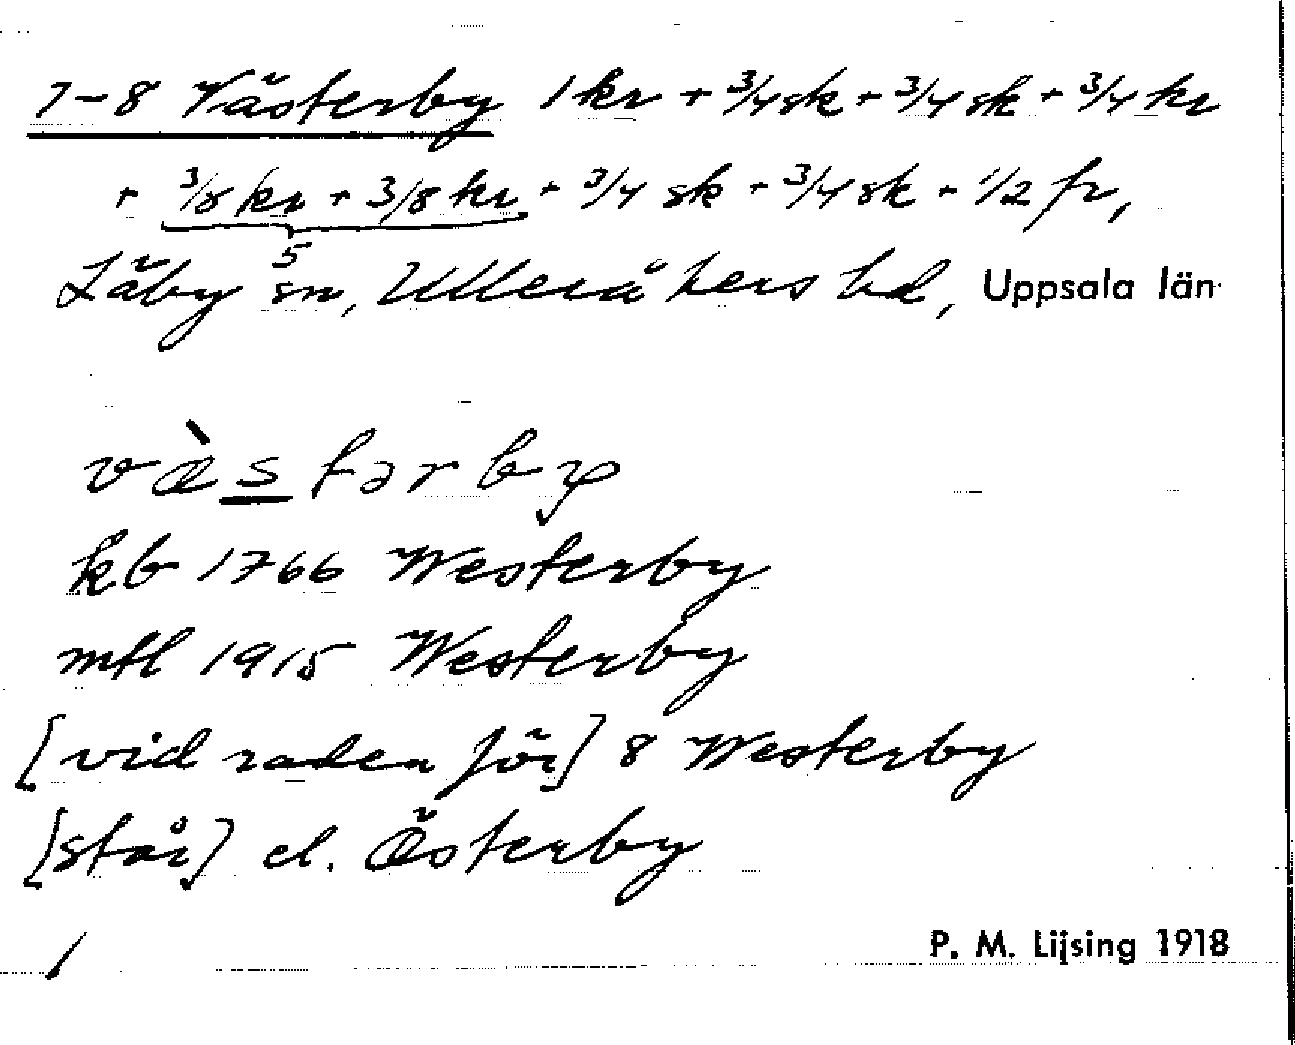 7-8 Västerby 1 kr + 3/4 sk + 3/4 sk + 3/4 kr
+ 3/8 kr + 3/8 kr + 3/4 sk + 3/4 sk + 1/2 fr,
5
Läby sn, Ulleråkers hd, Uppsala län
væ̀stərby
kb 1766 Westerby
mtl 1915 Westerby
[vid raden för] 8 Westerby
[står] el. Österby
P. M. Lijsing 1918